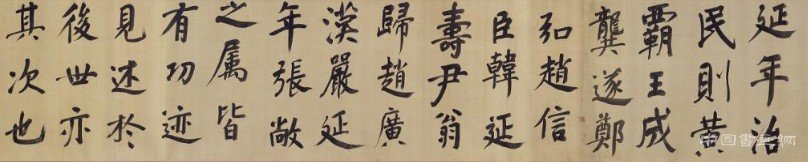 延年治
民則黃
霸王成
龔遂鄭
弘趙信
臣韓延
壽尹翁
歸趙廣
漢嚴延
年張敞
之属皆
有功迹
見述於
後世亦
其次也